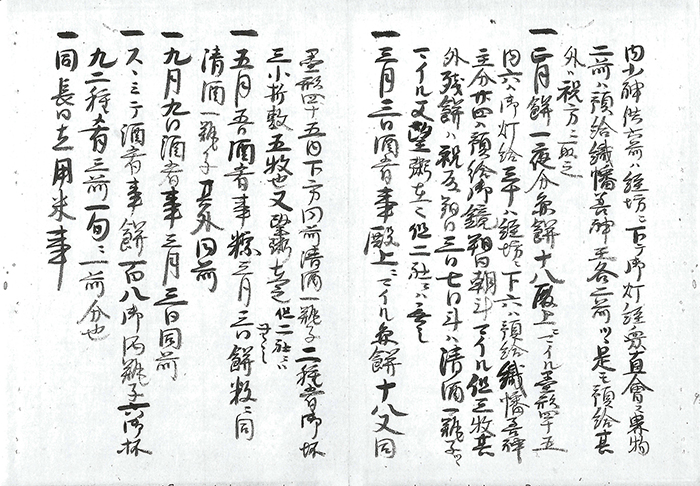 内小神供六前ハ経坊ニ下ス御灯経衆直會菓物
二前ハ預給織幡吾神主各二前ツヽ是モ預給其
外ハ祝方ニ取之
一 正月餅一夜分〆餅十八殿上ニマイル墨形四十五
内六ハ御灯給三十ハ経坊ニ下六ハ預給織幡吾神
主分廿四ハ預給御鏡朔日朝斗マイル但三枚其
外残餅ハ祝方朔日三日七日斗ハ清酒一瓶子ツヽ
マイル又望粥在之但二社ニハ無之
一 三月三日酒肴事殿上ニマイル〆餅十八又同
墨形四十五内下方同前清酒一瓶子二種肴御坏
三小折敷五枚也又望粥在之但二社ニハ無之
一 五月五日酒肴事粽三月三日餅数ニ同
清酒一瓶子其外同前
一 九月九日酒肴事三月三日同前
一 スヽミテ酒肴事餅百八御酒瓶子一御坏
九二種肴三前一旬ニ一前分也
一 同長日立用米事